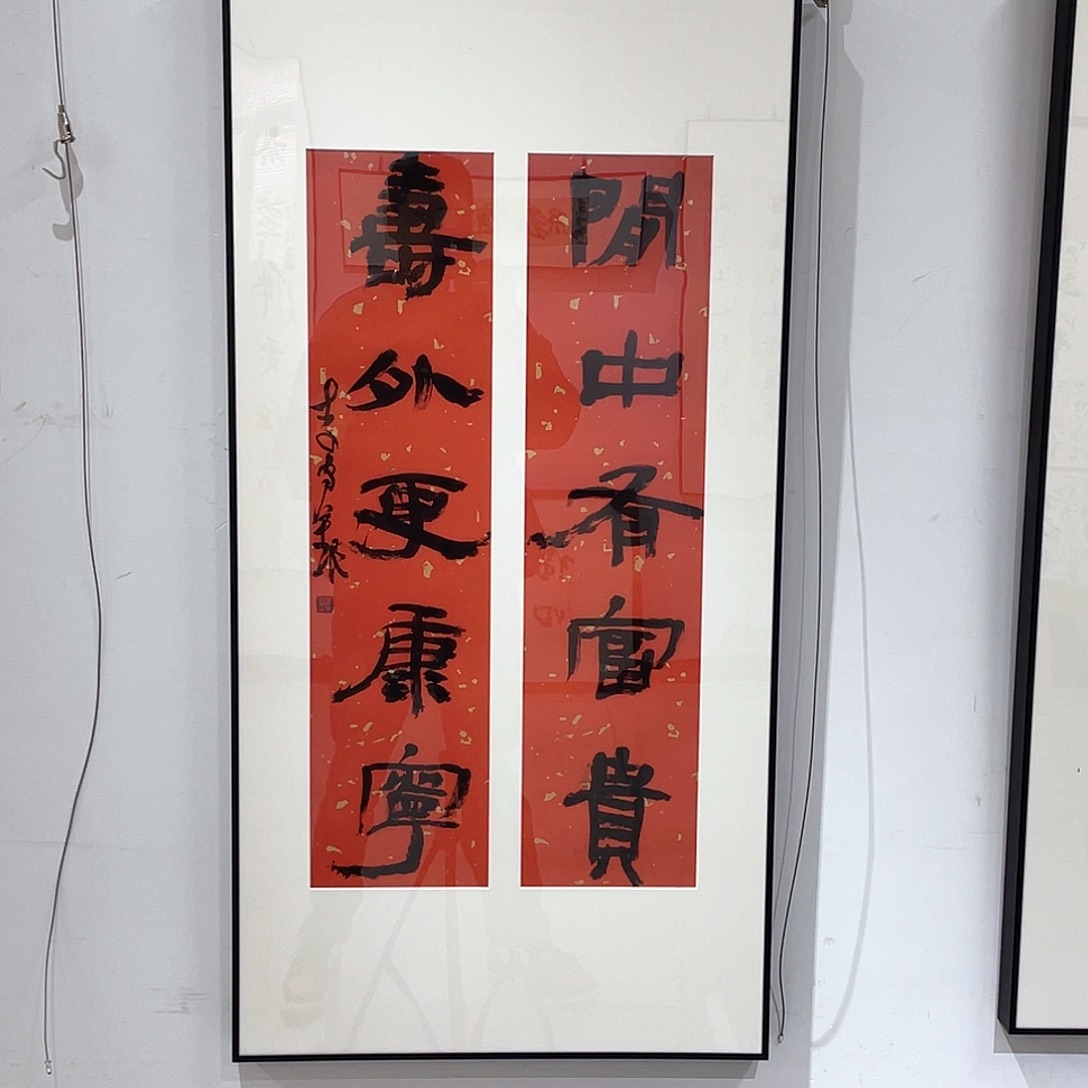 閒中有富貴
壽外更康寧